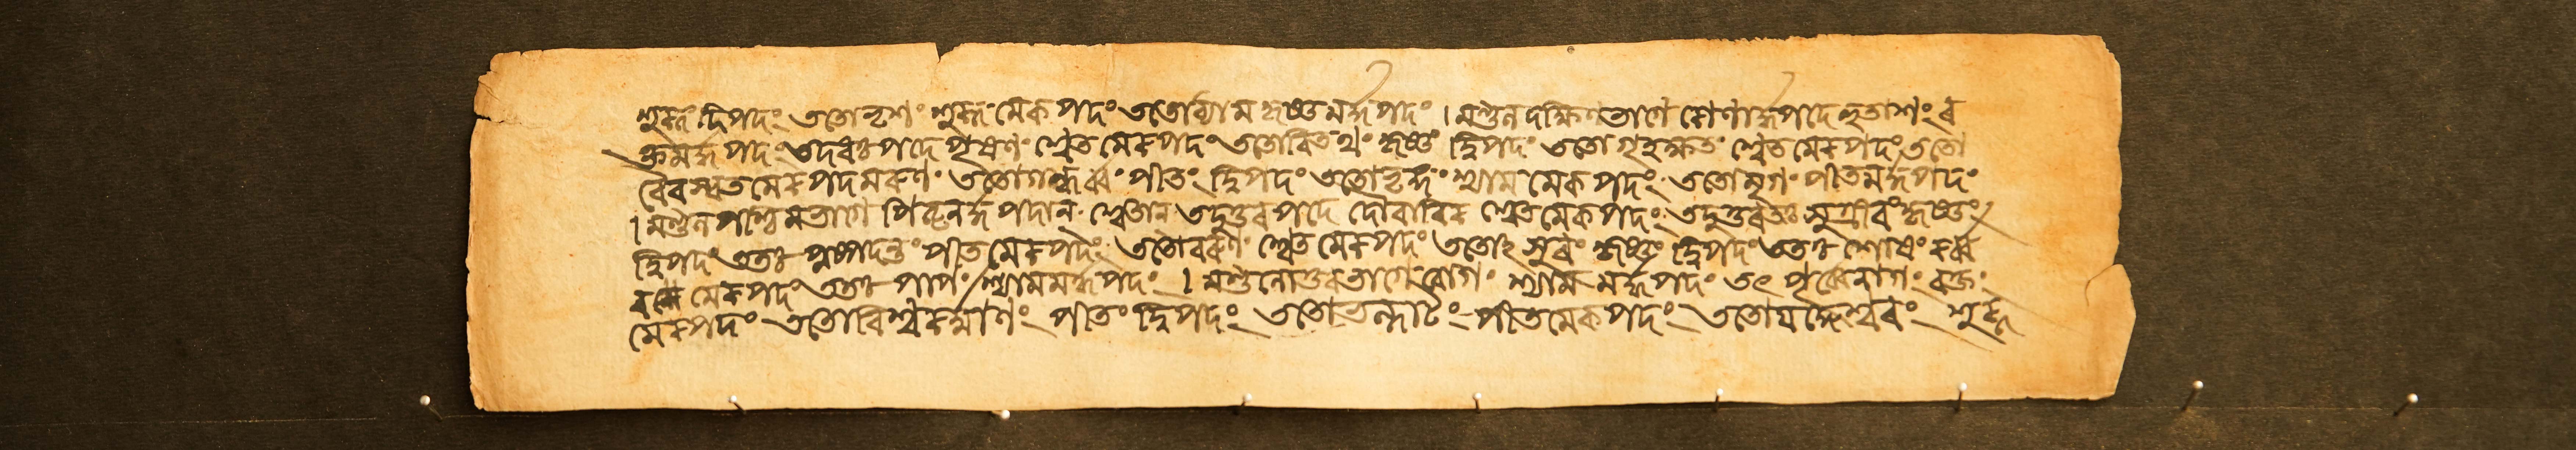 শুক্লং দ্বিপদং ততো ভৃশং শুক্লমেকপদং ততো ব্যোম কৃষ্ণমৰ্দ্ধপদং । মণ্ডলদক্ষিণভাগে কোণাৰ্দ্ধপদে হুতাশং ৰ
ক্তমৰ্দ্ধপদং তদধঃপদে পূষণং শ্বেতমেকপদং ততো বিতথং কৃষ্ণং দ্বিপদং ততো গৃহক্ষতং শ্বেতমেকপদং ততো
বৈবস্বতমেকপদমৰুণং ততো গন্ধৰ্ব্বং পীতং দ্বিপদং ততো ভৃঙ্গং শ্যামমেকপদং ততো মৃগং পীতমৰ্দ্ধপদং
। মণ্ডলপশ্চিমভাগে পিতৃনৰ্দ্ধপদান্ শ্বেতান্ তদুত্তৰপদে দৌবাৰিকং শ্বেতমেকপদং তদুত্তৰতঃ সুগ্ৰীবং কৃষ্ণং
দ্বিপদং ততঃ পুষ্পদন্তং পীতমেকপদং ততো বৰুণং শ্বেতমেকপদং ততোঽসুৰং কৃষ্ণং দ্বিপদং ততঃ শোষং কৰ্ব্ব
মেকপদং ততঃ পাপং শ্যামমৰ্দ্ধপদং । মণ্ডলোত্তৰভাগে ৰোগং শ্যামমৰ্দ্ধপদং তৎপূৰ্ব্বে নাগং ৰক্ত
মেকপদং ততো বিশ্বকৰ্ম্মাণং পীতং দ্বিপদং ততো ভল্লাটং পীতমেকপদং ততো যজ্ঞেশ্বৰং শুক্ল